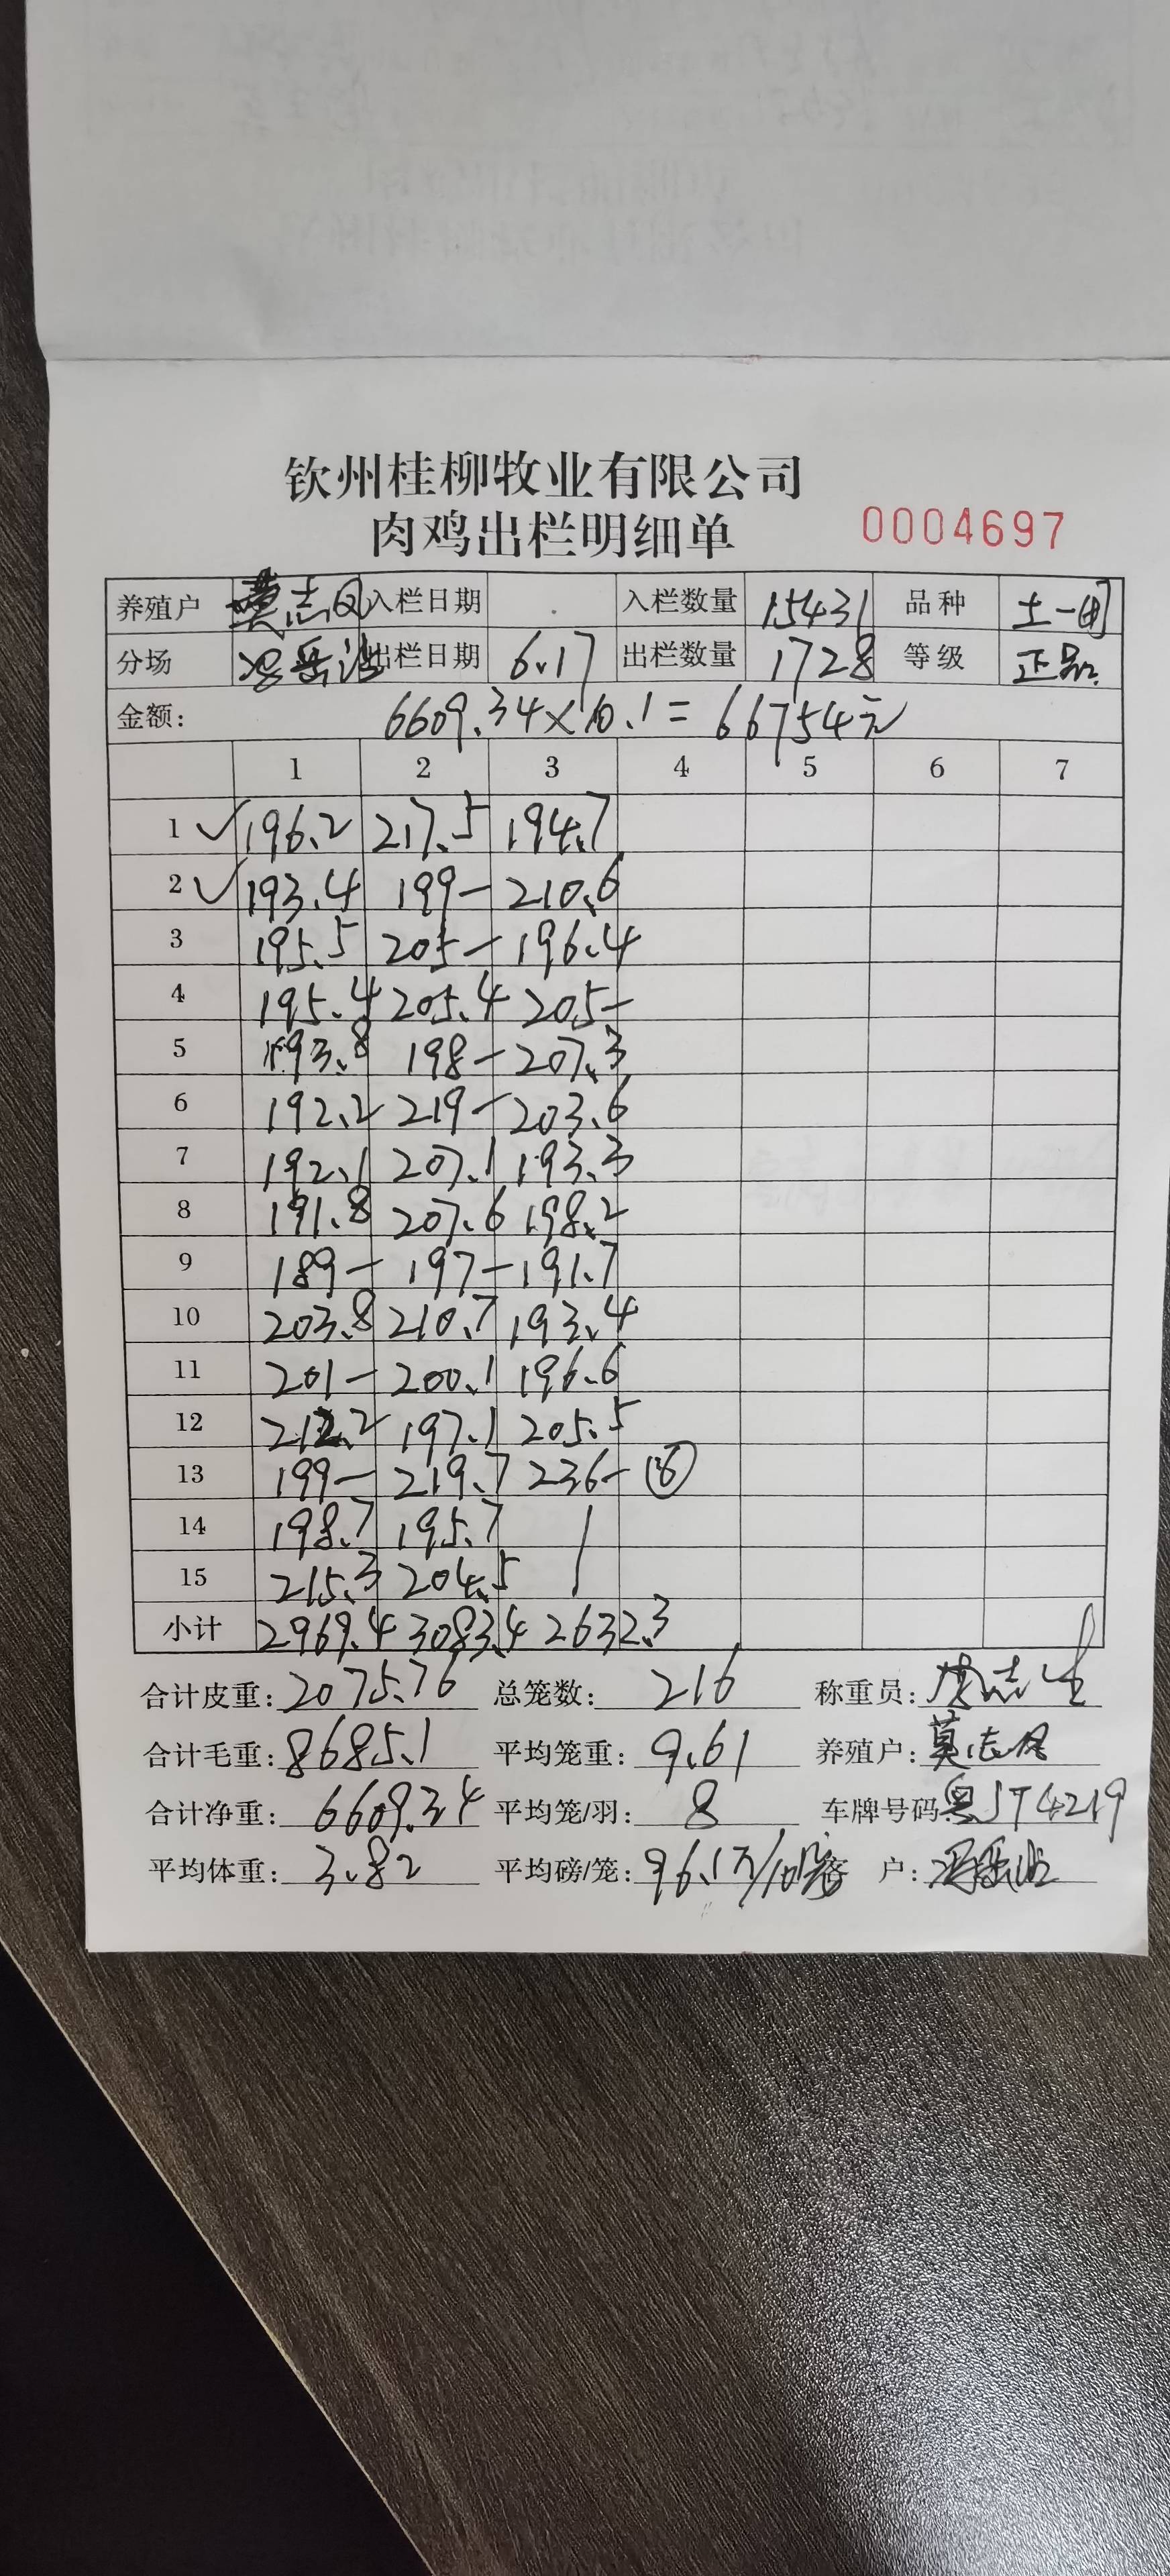 钦州桂柳牧业有限公司
肉鸡出栏明细单 0004697
养殖户 莫志凤 入栏日期 入栏数量 15431 品种 土一
分场 出栏日期 6.17 出栏数量 1728 等级 正品
金额: 6609.34×10.1=66754元
1 2 3 4 5 6 7
1 ✓ 196.2 217.5 194.7
2 ✓ 193.4 199- 210.6
3 195.5 205- 196.4
4 195.4 205.4 205-
5 193.8 198- 207.3
6 192.2 219- 203.6
7 192.1 207.1 193.3
8 191.8 207.6 198.2
9 189- 197- 191.7
10 203.8 210.7 193.4
11 201- 200.1 196.6
12 212.2 197.1 205.5
13 199- 219.7 236- ⑥
14 198.7 195.7
15 215.3 204.5
小计 2969.4 3083.4 2632.3
合计皮重: 2075.76 总笼数: 216 称重员:
合计毛重: 8685.1 平均笼重: 9.61 养殖户: 莫志
合计净重: 6609.34 平均笼/羽: 8 车牌号码: 粤JT4219
平均体重: 3.82 平均磅/笼: 96.1 客 户: